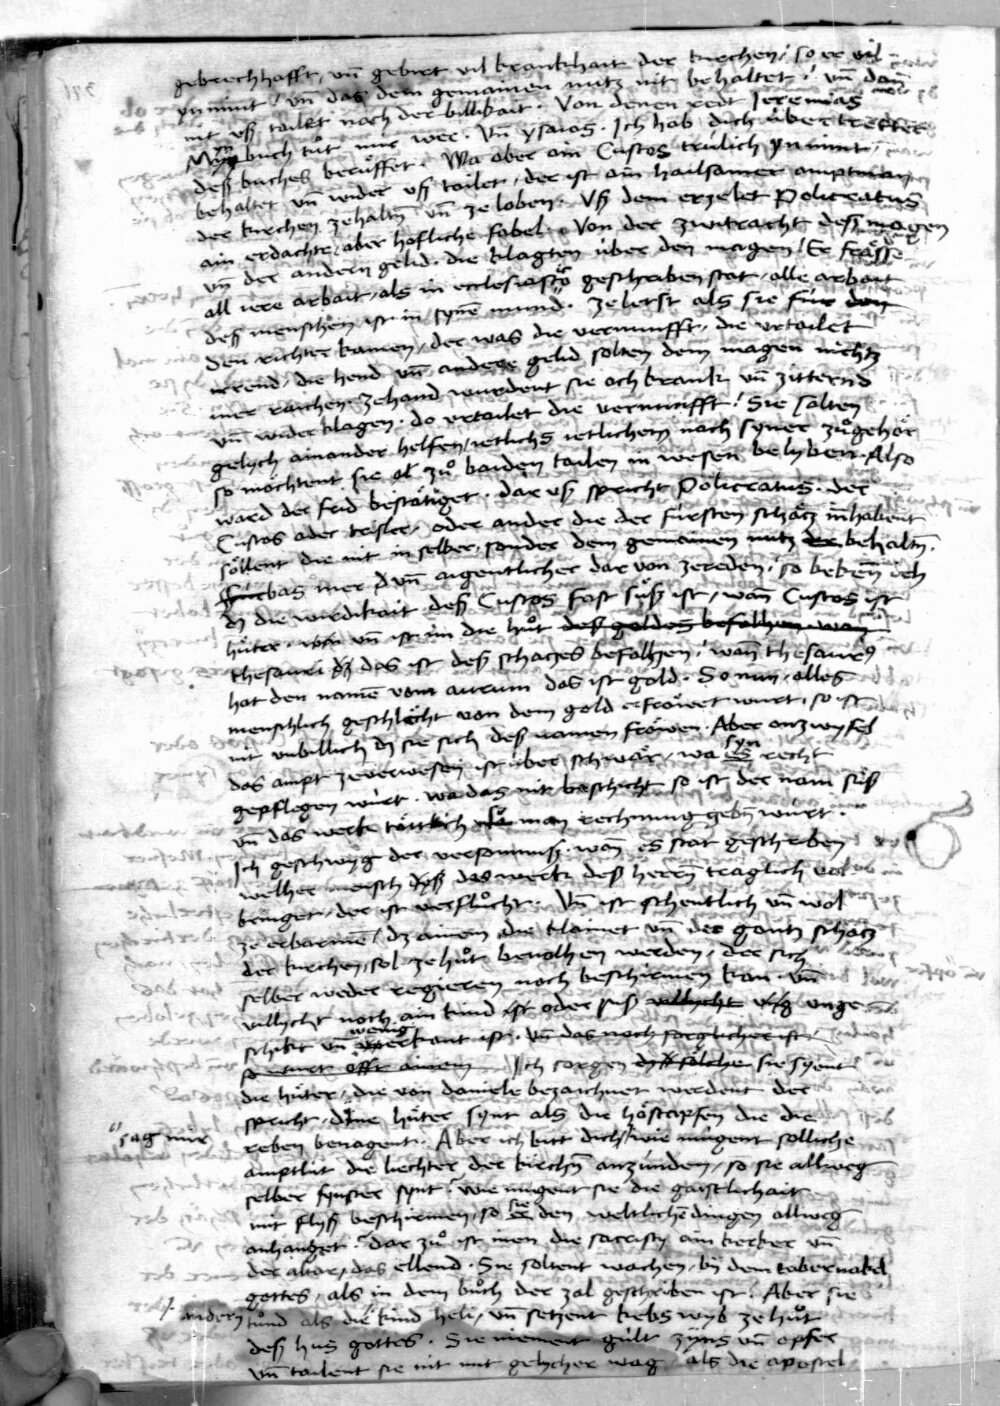 gebrechhafft, vn̄ gebirt vil kranckhait der kirchen / so er vil
ynnimt / vn̄ das dem gemainen nutz nit behaltet / vn̄ dañ
nit vß tailt noch der billikait. Von denen redt Jeremias
Myn buch tüt mir wee. Vn̄ ysaias. Ich hab dich übertretter
deß buches berüffet. Wa aber ain Custos trülich ynnimt,
behaltet vn̄ wider vß tailet / der ist ain hailsamer amptman
der kirchen zehaltn̄ vn̄ zeloben. Vß dem erzelet Policratus
ain erdachte, aber hofliche fabel. Von der zwitracht deß magen
vn̄ der andern gelid. die klagten über den magen / Er frässe
all iere arbait, als in ecclesiastico geschriben stat, alle arbait
deß menschen ist in synē mund. Zeletst als sie für den
den richter kamen / der was die vernunfft, die vrtailet
irrend, die hend vn̄ andere gelid solten dem magen nichtz
mer raichen. Zehand wurdent sie och kranck vn̄ zitternd
vn̄ wider klagen. do vrtailet die vernunfft / Sie solten
gelych ainander helfen / ietlichs ietlichem noch syner zůgehör
so möchtent sie zů baiden tailen in wesen belyben. Also
ward der frid bestätiget. dar vß spricht Policratus. der
Custos oder tresler, oder ander die der fürsten schätz innhabent
söllent die nit in selber, sonder dem gemainen nutz behaltn̄.
Fürbas mer vn̄ aigentlicher dar von zereden / so beken̄ ich
dz die wirdikait deß Custos fast süß ist / wan̄ Custos ist
hüter. vn̄ ist im die hůt deß goldes befolhen wan
thesauri das ist deß schatzes befolhen / wan̄ thesaurus
hat den namē vom aurum das ist gold. So nun alles
menschlich geschlächt von dem gold erfröwet wirt, so ist
nit vnbillich dz sie sich deß namen fröwen. Aber onzwyfel
das ampt zeverwesen ist über schwär, wa syn recht
gepflegen würt. wa das nit beschicht so ist der nam süß
vn̄ das werck töttlich so man rechnung gebn̄ würt.
Ich geschwyg der versomniß. wan̄ es stat geschriben
welher mensch das werck deß herrn̄ träglich vol
bringet, der ist verflůcht. Vn̄ ist schentlich vn̄ wol
ze erbarmē / dz ainem die klainet vn̄ der gantz schatz
der kirchen sol ze hůt bevolhen werden, der sich
selber weder regieren noch beschirmen kan vn̄
villycht noch ain kind ist oder suß villycht vnge
schikt vn̄ wenig erkant ist. Vn̄ das noch sorglicher ist
so würt offt ainem Ich sorgen dz sölche sie syent
die hüter, die von daniele bezaichnet werdent der
spricht, dine hüter synt als die höstapfen die die
reben benagent. Aber ich bitt dich wie mügent solliche
sag mir
amptlüt die liechter der kirchn̄ anzünden, so sie allweg
selber fynster synt? wie mügent sie die gaistlichait
mit flyß beschirmen, so sie den weltlichē dingen allweg
anhanget. Dar zů ist inen die sacristy ain kerker vn̄
der altar, das ellend. Sie soltent wachen by dem tabernakel
gottes, als in dem bůch der zal geschriben ist. Aber sie
andern tůnd als die kind heli, vn̄ setzent kebs wyb ze hůt
deß hus gottes. Sie niement gült zyns vn̄ opfer
vn̄ tailent sie nit mit gelycher wag, als die apostel